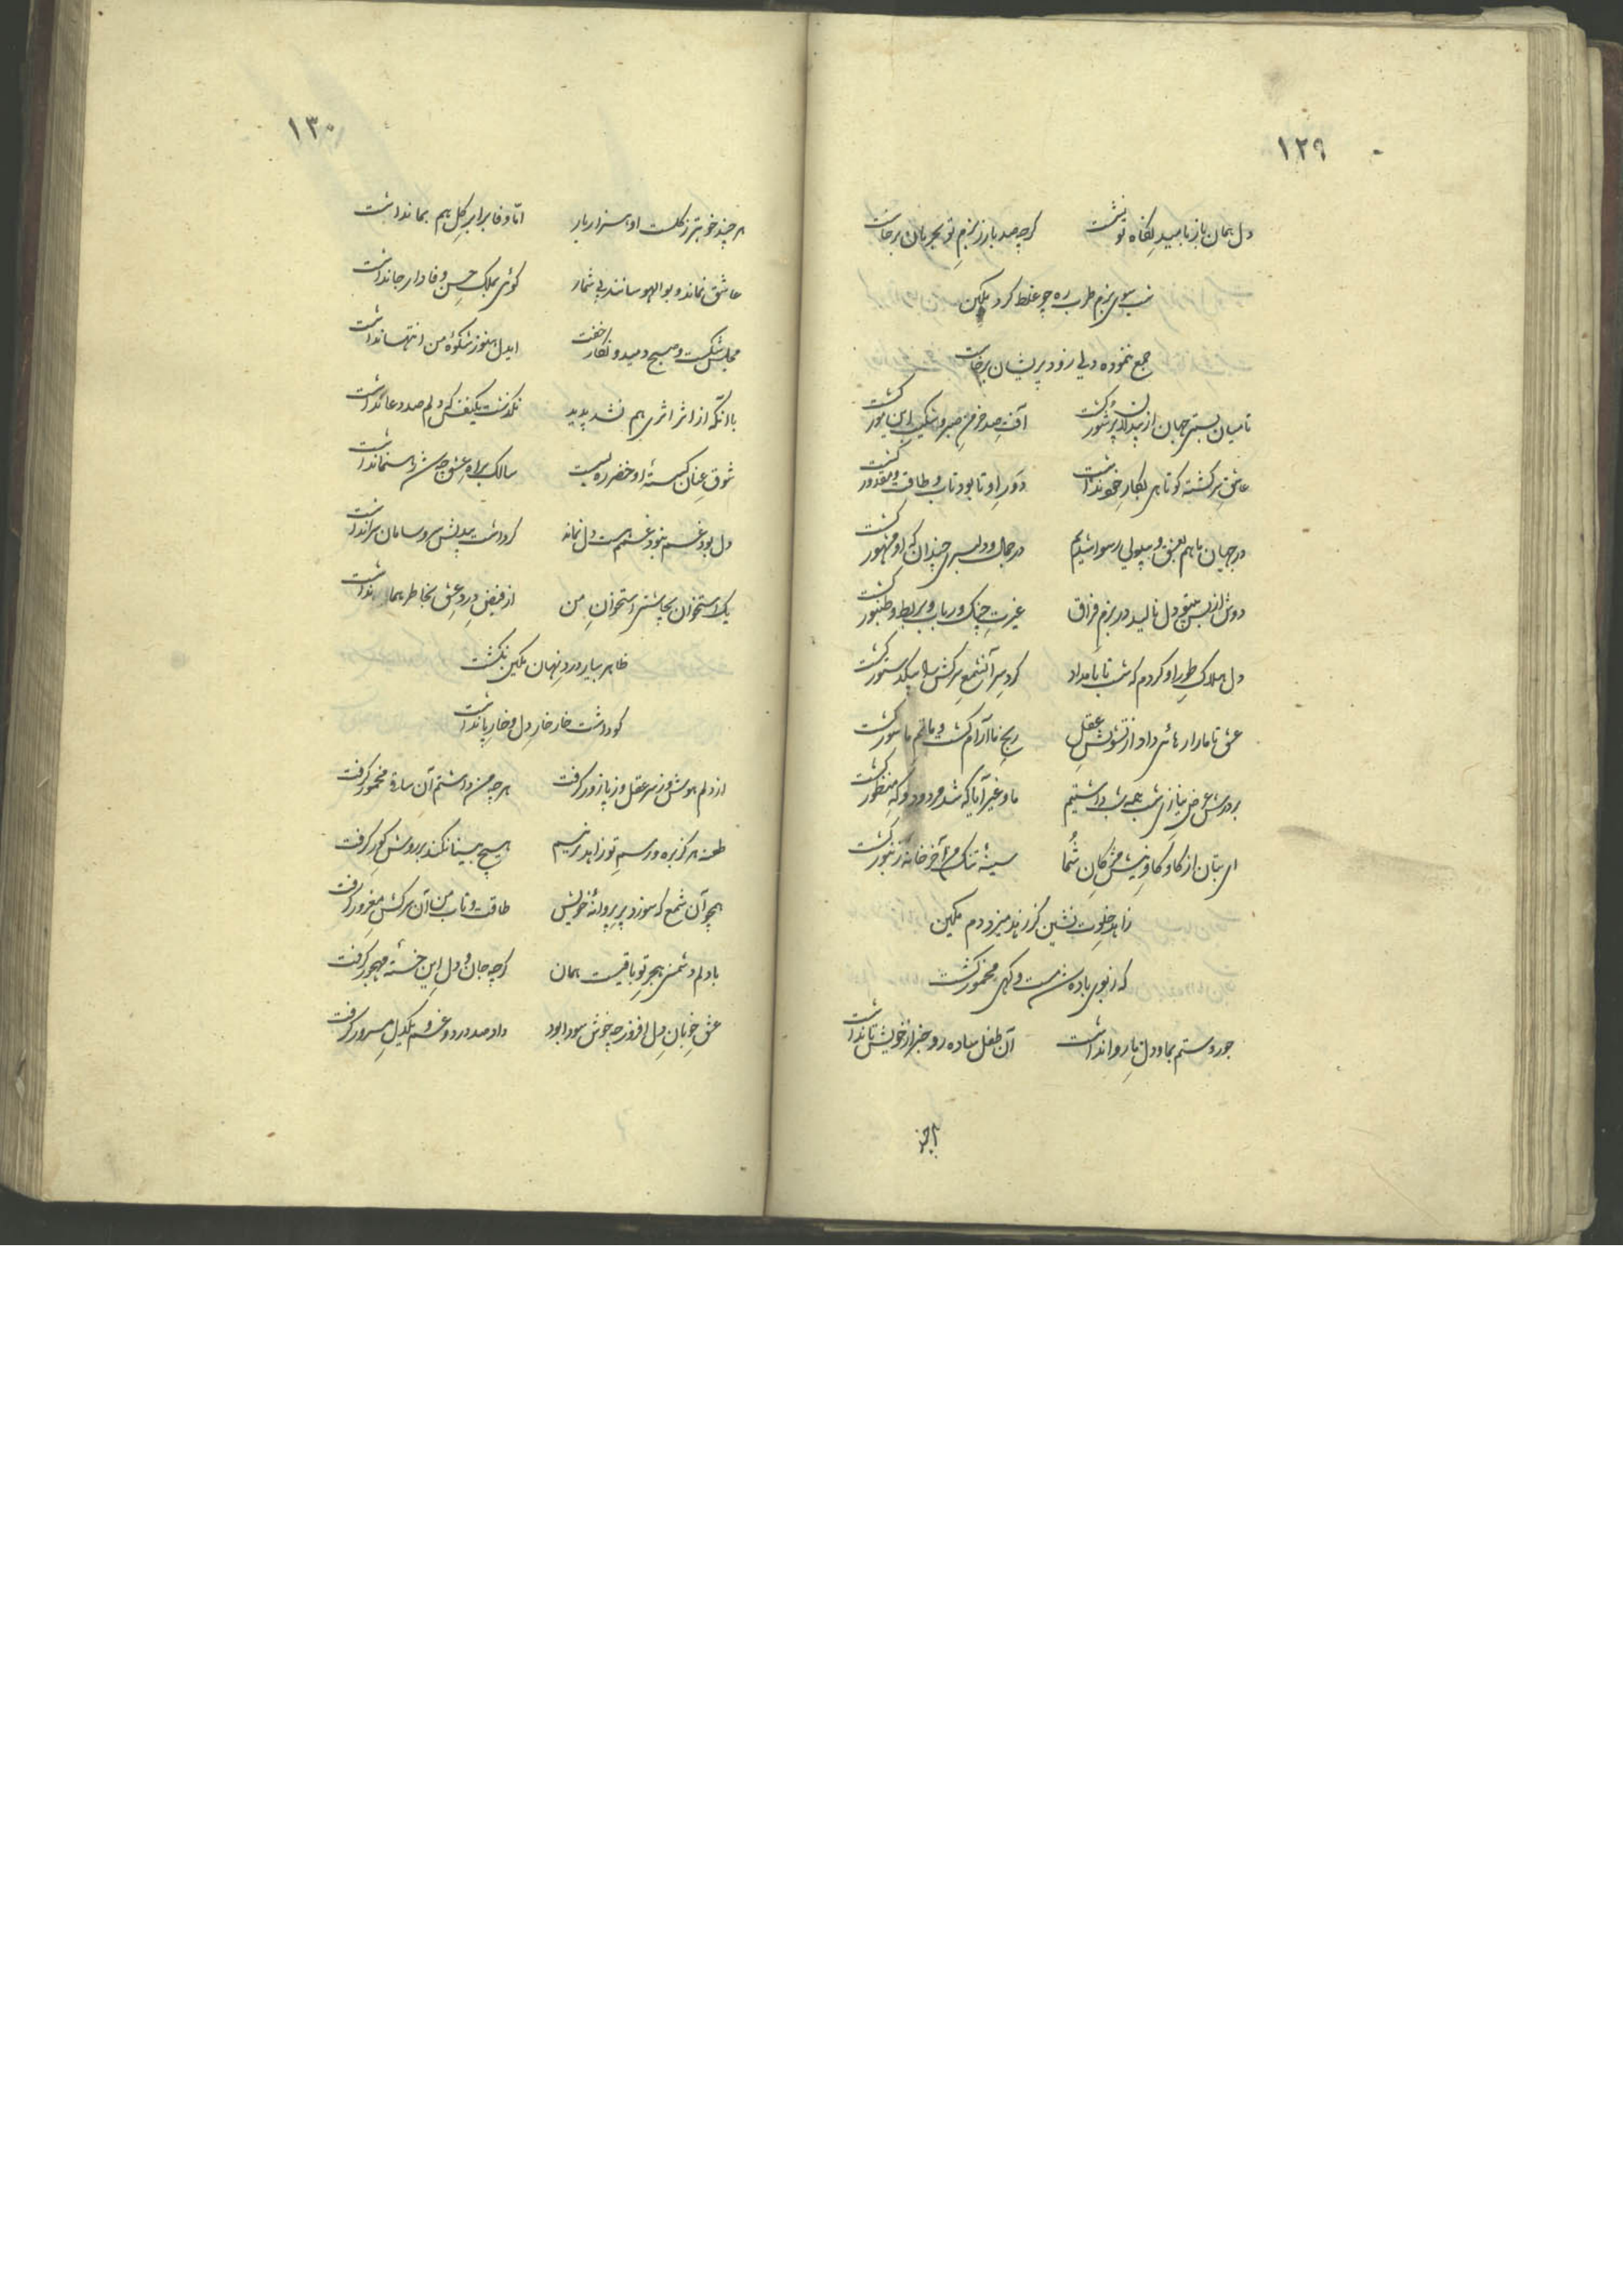 ۱۲۹
دل همان باز بامید نگاه تو نشست گرچه صد بار ز بزم تو بحرمان برخاست
شب بسوی بزم طرب ره چو غلط کرد مکین
جمع ننموده دلی زود پریشان برخاست
تا میان بستی جهان از بیدلان پرشور گشت آفت صد خرمن صبر و شکیب این مور گشت
عاشق سرگشته کوتاهی بکار خود نداشت دور او تا بود تاب و طاقت و مقدور گشت
در جهان ما هم بعشق و بیدلی رسوا شدیم در جمال و دلبری چندان که او مشهور گشت
دوش از بس دل نالید در بزم فراق غیرت چنگ و رباب و بربط و طنبور گشت
دل هلاک طور او کردم که شب تا بامداد گرد سر آنشمع سرکش را بیک دستور گشت
عشق تا ما را رهائی داد از تشویش عقل رنج ما آرام گشت و ماتم ما سور گشت
بر درش عرض نیازی شب همه شب داشتیم ما و غیر آیا که شد مردود و که منظور گشت
ای بتان از کاو کاو نیش مژگان شما سینه تنگ من آخر خانه زنبور گشت
زاهد خلوت نشین کز زهد میزد دم مکین
که ز بوی باده شد مست و گهی مخمور گشت
جور و ستم بما و دل ما روا نداشت آن طفل ساده رو خبر از خویش تا نداشت
۱۳۰
هر چند خوبتر ز گلست او هزار بار اما وفا برابر گل هم بما نداشت
عاشق نماند و بوالهوسانند بی شمار گوئی بملک حسن وفادار جا نداشت
مجلس شکست و صبح دمید و نگار خفت ایدل هنوز شکوهٔ من انتها نداشت
با آنکه از اثر اثری هم نشد پدید نگذشت یکنفس که دلم صد دعا نداشت
شوق عنان گسستهٔ او خضر ره بست سالک براه عشق چه شد رهنما نداشت
دل بود غم نبود غم هست دل نماند گر داشت بیدلش سر و سامان سرا نداشت
یک استخوان بچاشنی استخوان من از فیض درد عشق بخاطر هما نداشت
ظاهر بیار درد نهان مکین نگشت
کو داشت خار خار دل و خار پا نداشت
از دلم هوش و ز سر عقل و ز پا زور گرفت هر چه من داشتم آن ساده مخمور گرفت
طعنه هرگز بره و رسم تو زاهد نزنیم هیچ بینا نکند بر روش کور گرفت
همچو آن شمع که سوزد پر پروانهٔ خویش طاقت و تاب من آن سرکش مغرور گرفت
با دلم دشمنی هجر تو باقیست همان گرچه جان و دل این خسته مهجور گرفت
عشق خوبان دل افروز چه خوش سودا بود داد صد درد و غم و یکدل مسرور گرفت